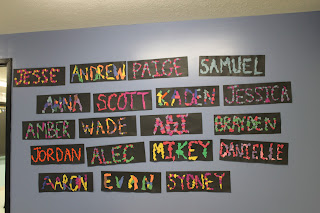 JESSE ANDREW PAIGE SAMUEL
ANNA SCOTT KADEN JESSICA
AMBER WADE ALI BRAYDEN
JORDAN ALEC MIKEY DANIELLE
AARON EVAN SYDNEY